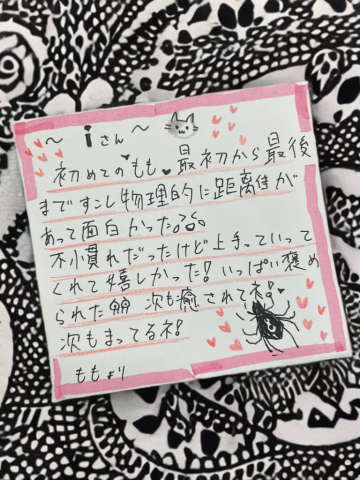 ～ iさん ～
初めてのもも♥最初から最後
まですこし物理的に距離が
あって面白かった
不慣れだったけど上手っていって
くれて嬉しかった！いっぱい褒め
られた 次も癒されてネ！
次もまってるネ！
ももより